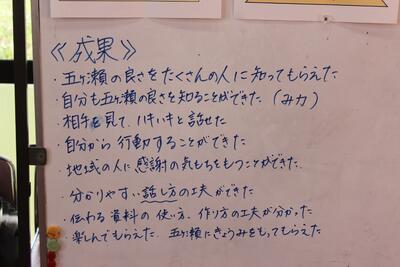 《成果》
・五ヶ瀬の良さをたくさんの人に知ってもらえた
・自分も五ヶ瀬の良さを知ることができた(みカ)
・相手を見て、ハキハキと話せた
・自分から行動することができた
・地域の人に感謝の気もちをもつことができた。
・分かりやすい話し方の工夫ができた
・伝わる資料の使い方、作り方の工夫が分かった
・楽しんでもらえた、五ヶ瀬にきょうみをもってもらえた